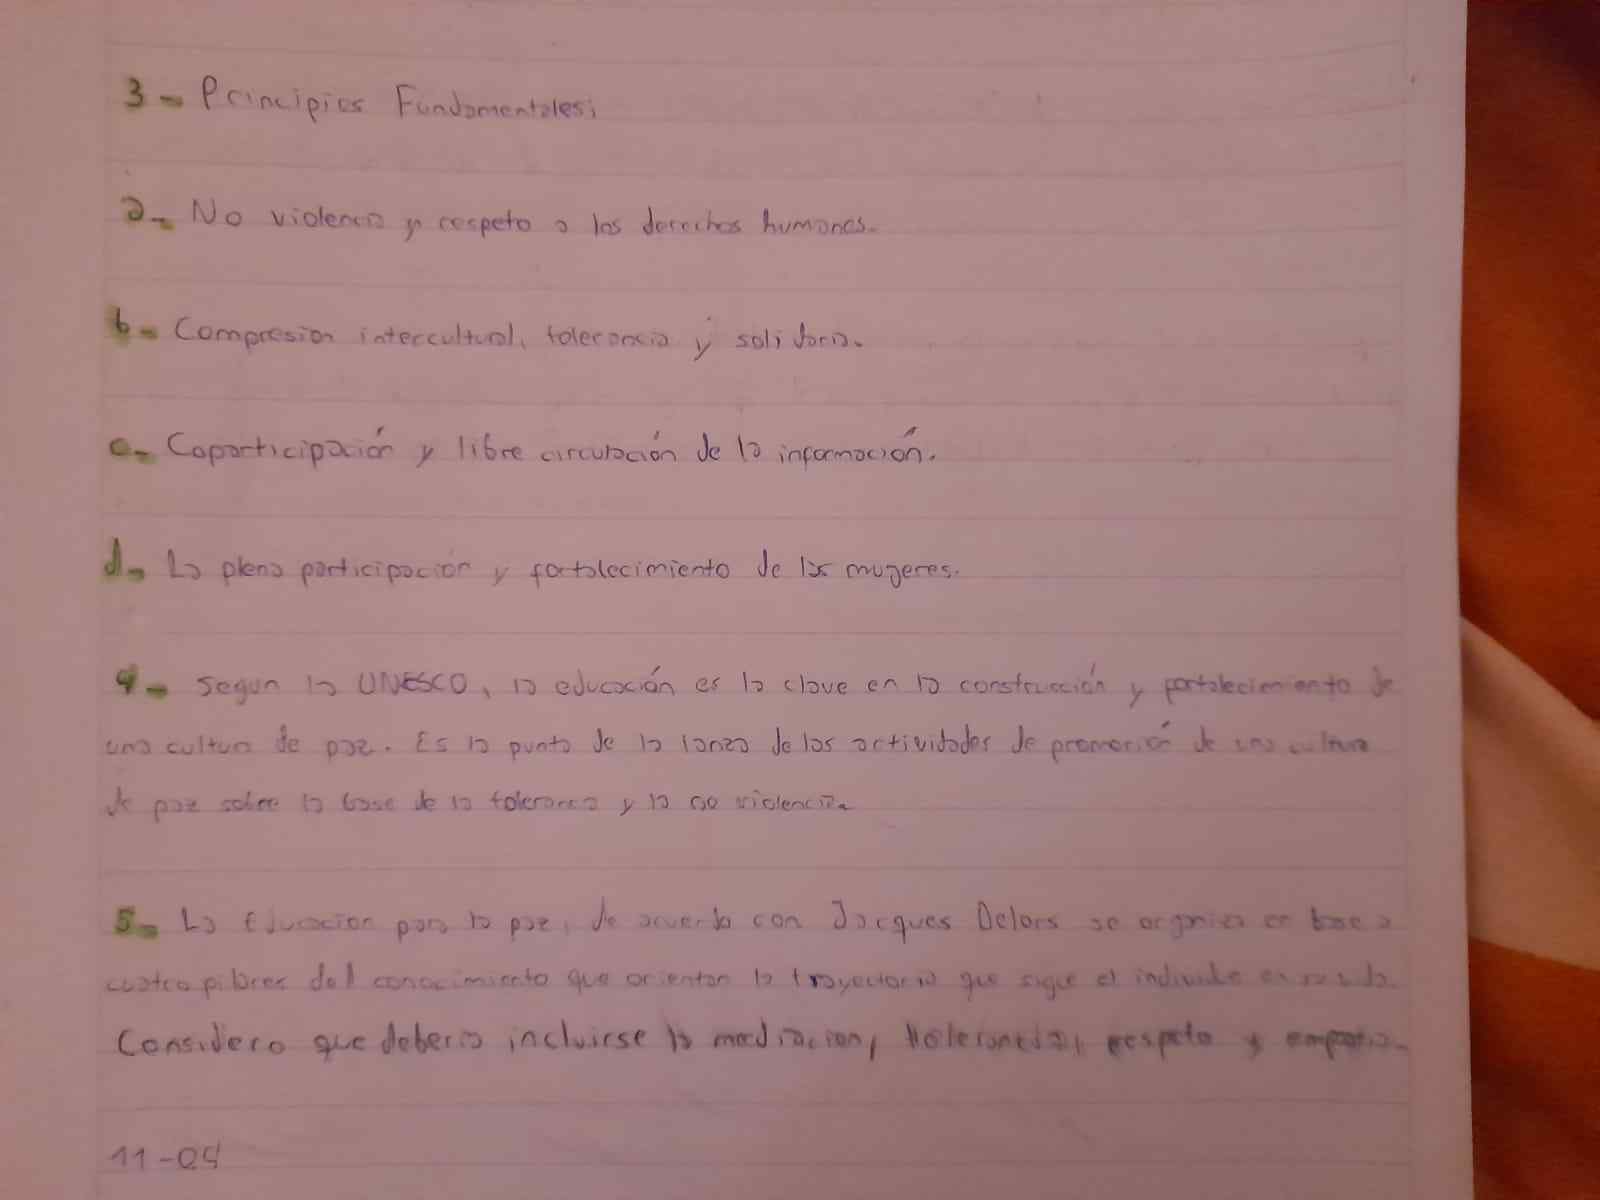 3- Principios Fundamentales:
a- No violencia y respeto a los derechos humanos.
b- Compresion intercultural, tolerancia y solidaria.
c- Coparticipación y libre circulación de la información.
d- La plena participación y fortalecimiento de las mujeres.
4- Segun la UNESCO, la educación es la clave en la construcción y fortalecimiento de
una cultura de paz. Es la punta de la lanza de las actividades de promoción de una cultura
de paz sobre la base de la tolerancia y la no violencia.
5- La Educacion para la paz, de acuerdo con Jacques Delors se organiza en base a
cuatro pilares del conocimiento que orientan la trayectoria que sigue el individuo en su vida.
Considero que deberia incluirse la mediacion, tolerancia, respeto y empatia.
11-04